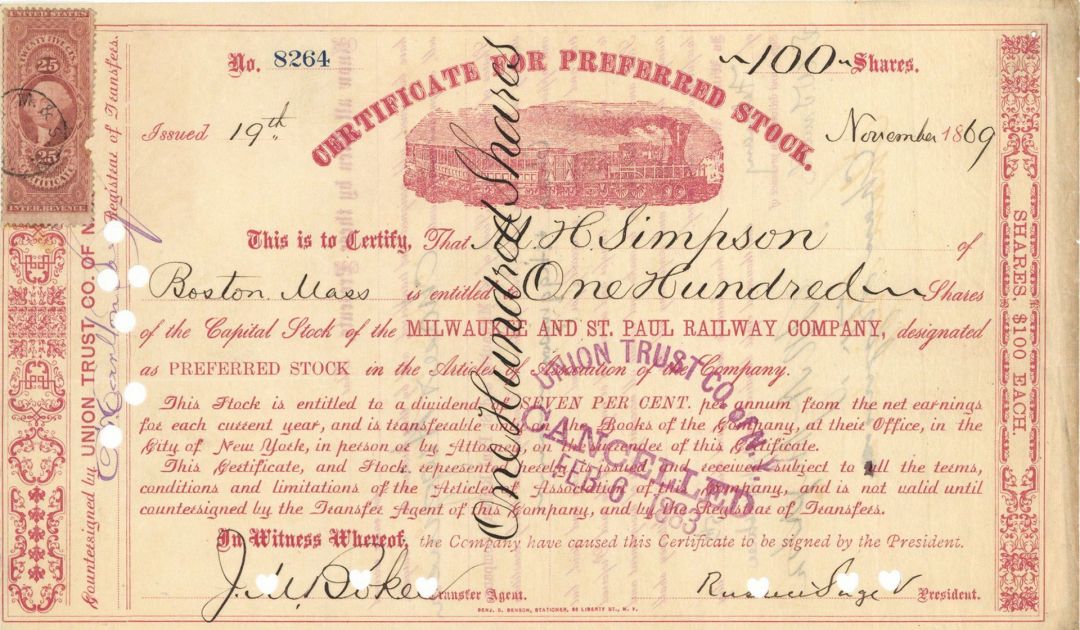 UNITED STATES
TWENTY FIVE CTS.
25
25
CERTIFICATE
INTER. REVENUE
No. 8264
CERTIFICATE FOR PREFERRED STOCK.
100 Shares.
Issued 19th November 1869
This is to Certify, That M. H. Simpson of
Boston. Mass is entitled to One Hundred Shares
of the Capital Stock of the MILWAUKEE AND ST. PAUL RAILWAY COMPANY, designated
as PREFERRED STOCK in the Articles of Association of the Company.
This Stock is entitled to a dividend of SEVEN PER CENT. per annum from the net earnings
for each current year, and is transferable on the Books of the Company, at their Office, in the
City of New York, in person or by Attorney, on surrender of this Certificate.
This Certificate, and Stock represented hereby is issued and received subject to all the terms,
conditions and limitations of the Articles of Association of the Company, and is not valid until
countersigned by the Transfer Agent of this Company, and by the Registrar of Transfers.
In Witness Whereof, the Company have caused this Certificate to be signed by the President.
Transfer Agent.
Russell Sage President.
BENJ. D. BENSON, STATIONER, 80 LIBERTY ST., N. Y.
One Hundred Shares
UNION TRUST CO. OF N.Y.
CANCELLED
FEB 6 1883
Countersigned by UNION TRUST CO. OF N.
Registrar of Transfers.
SHARES, $100 EACH.